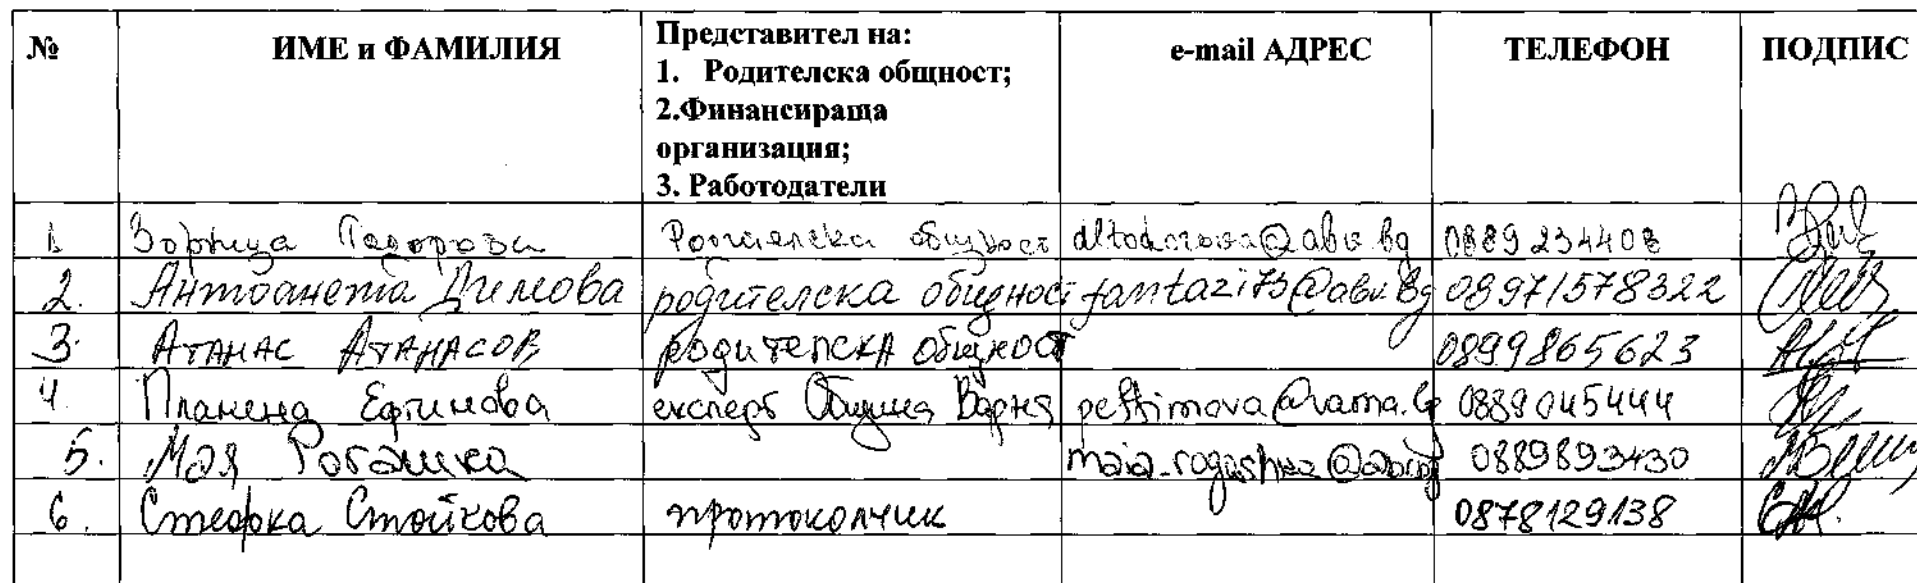 № ИМЕ и ФАМИЛИЯ Представител на: e-mail АДРЕС ТЕЛЕФОН ПОДПИС
1. Родителска общност;
2.Финансираща
организация;
3. Работодатели
1. Зорница Тодорова Родителска общност dltodorova@abv.bg 0889 234408
2. Антоанета Димова родителска общност fantazi73@abv.bg 08971578322
3. Атанас Атанасов родителска общност 0899865623
4. Пламена Ефтимова експерт Община Варна peftimova@varna.bg 0889045444
5. Мая Рогашка maia_rogashka@abv.bg 0889893430
6. Стефка Стойкова протоколчик 0878129138